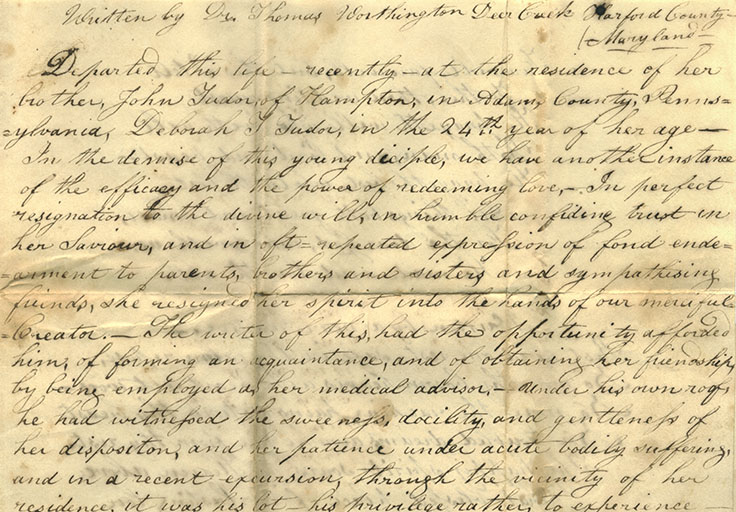 Written by Dr. Thomas Worthington Deer Creek Harford County-
Maryland-
Departed this life - recently - at the residence of her
brother, John Tudor, of Hampton, in Adams County, Penns-
=ylvania, Deborah T Tudor, in the 24th. year of her age -
In the demise of this young diciple, we have another instance
of the efficacy and the power of redeeming love, - In perfect
resignation to the divine will, in humble confiding trust in
her Saviour, and in oft=repeated expression of fond ende-
=arment to parents, brothers and sisters and sympathising
friends, she resigned her spirit into the hands of our merciful-
Creator. - The writer of this, had the opportunity afforded
him, of forming an acquaintance, and of obtaining her friendship,
by being employed as her medical advisor, - under his own roof,
he had witnessed the sweeness, docility, and gentleness of
her dispositon, and her patience under acute bodily suffering,
and in a recent excursion, through the vicinity of her
residence, it was his lot - his privilege rather, to experience -